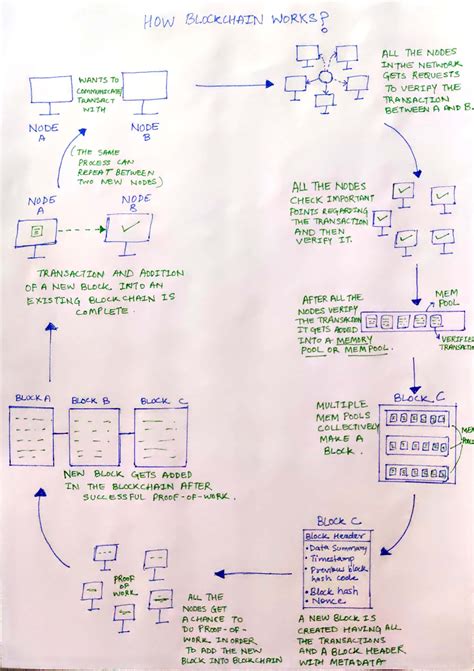 HOW BLOCKCHAIN WORKS?
WANTS TO
COMMUNICATE/
TRANSACT
WITH
NODE
A
NODE
B
ALL THE NODES
IN THE NETWORK
GETS REQUESTS
TO VERIFY THE
TRANSACTION
BETWEEN A AND B.
(THE SAME
PROCESS CAN
REPEAT BETWEEN
TWO NEW NODES)
ALL THE NODES
CHECK IMPORTANT
POINTS REGARDING
THE TRANSACTION
AND THEN
VERIFY IT.
NODE
A
NODE
B
TRANSACTION AND ADDITION
OF A NEW BLOCK INTO AN
EXISTING BLOCKCHAIN IS
COMPLETE.
AFTER ALL THE
NODES VERIFY
THE TRANSACTION
IT GETS ADDED
INTO A MEMORY
POOL OR MEMPOOL.
MEM
POOL
VERIFIED
BLOCK A
BLOCK B
BLOCK C
NEW BLOCK GETS ADDED
IN THE BLOCKCHAIN AFTER
SUCCESSFUL PROOF-OF-WORK.
MULTIPLE
MEM POOLS
COLLECTIVELY
MAKE A
BLOCK.
BLOCK C
BLOCK C
Block Header
• Data Summary
• Timestamp
• Previous block
hash code
• Block hash
• Nonce
PROOF
OF
WORK
ALL THE
NODES GET
A CHANCE TO
DO PROOF-OF-
WORK IN ORDER
TO ADD THE NEW
BLOCK INTO BLOCKCHAIN
A NEW BLOCK IS
CREATED HAVING ALL
THE TRANSACTIONS
AND A BLOCK HEADER
WITH METADATA